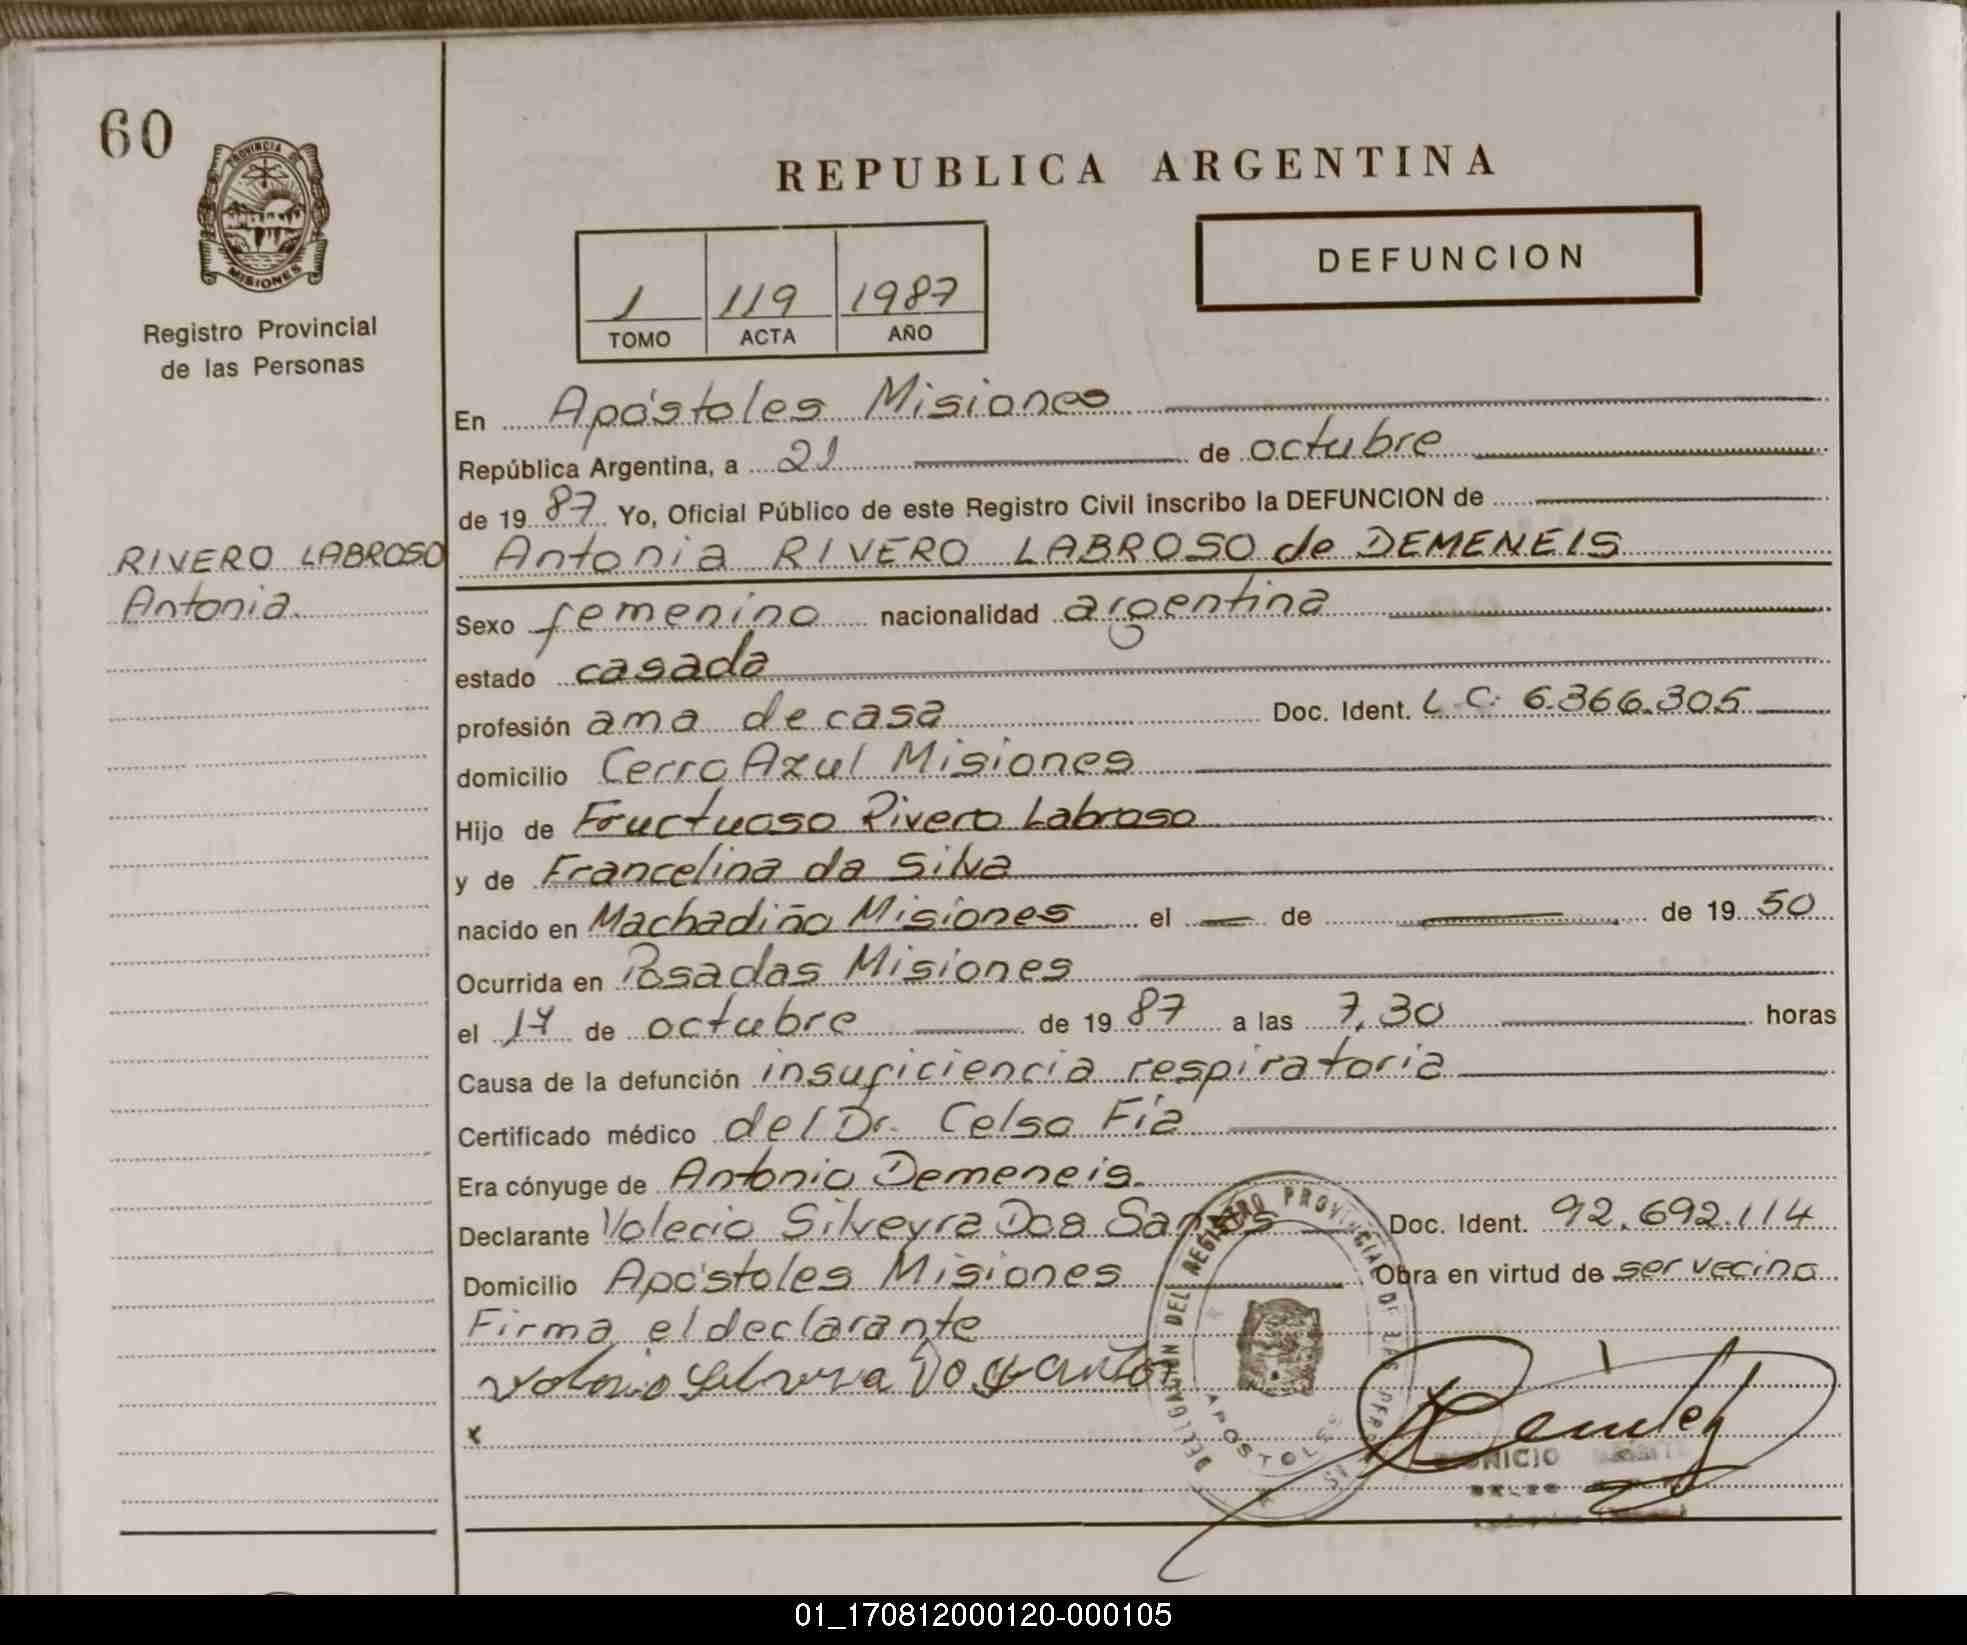 60
PROVINCIA DE
MISIONES
Registro Provincial
de las Personas
RIVERO LABROSO
Antonia
REPUBLICA ARGENTINA
DEFUNCION
1 119 1987
TOMO ACTA AÑO
En Apóstoles Misiones
República Argentina, a 21 de octubre
de 19 87 Yo, Oficial Público de este Registro Civil inscribo la DEFUNCION de
Antonia RIVERO LABROSO de DEMENEIS
Sexo femenino nacionalidad argentina
estado casada
profesión ama de casa Doc. Ident. L.C: 6.366.305
domicilio Cerro Azul Misiones
Hijo de Fructuoso Rivero Labroso
y de Francelina da Silva
nacido en Machadiño Misiones el — de — de 19 50
Ocurrida en Posadas Misiones
el de octubre de 19 87 a las 7,30 horas
Causa de la defunción insuficiencia respiratoria
Certificado médico del Dr. Celso Fia
Era cónyuge de Antonio Demeneis.
Declarante Volecio Silveyra Dos Santos Doc. Ident. 92.692.114
Domicilio Apóstoles Misiones Obra en virtud de ser vecino
Firma el declarante
DELEGACION DEL REGISTRO PROVINCIAL DE LAS PERSONAS
APOSTOLES
x
01_170812000120-000105